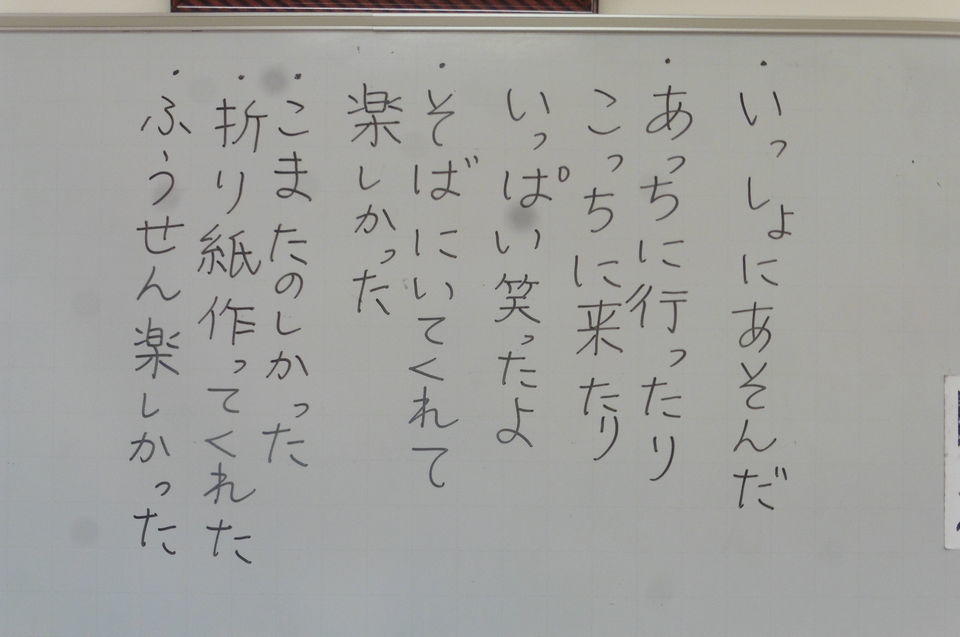 ・いっしょにあそんだ
・あっちに行ったり
こっちに来たり
いっぱい笑ったよ
・そばにいてくれて
楽しかった
・こまたのしかった
・折り紙作ってくれた
・ふうせん楽しかった